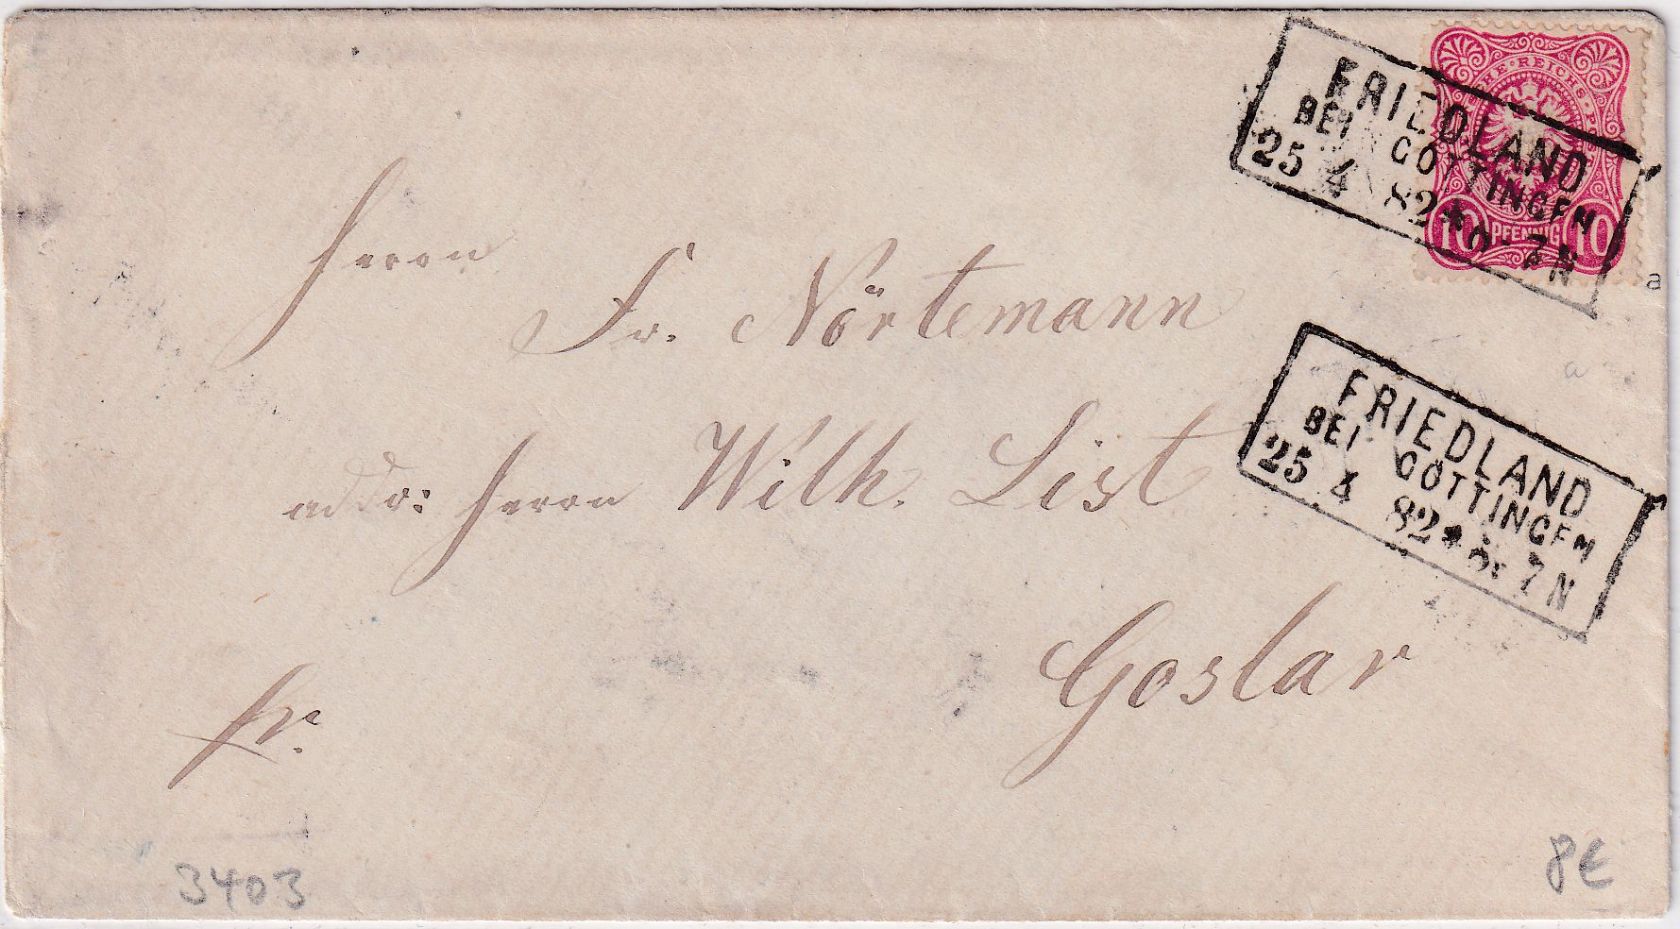 HE • REICHS • P
10 PFENNIG 10
FRIEDLAND
BEI GÖTTINGEN
25 4 82 * 6-7N
a
Herrn
Fr. Nörtemann
addr: Herrn Wilh. List
Goslar
fr.
a
FRIEDLAND
BEI GÖTTINGEN
25 4 82 * 6-7N
3403
8€